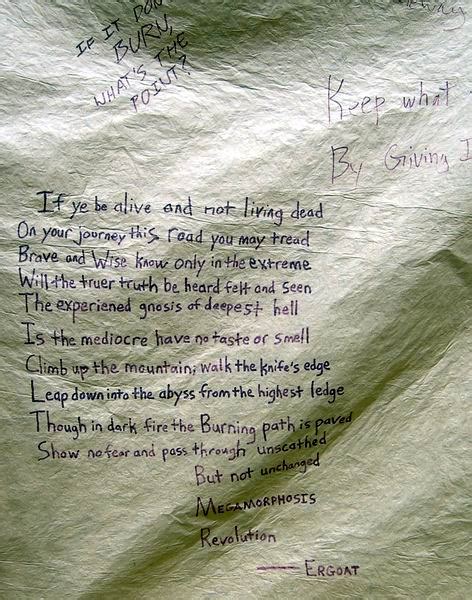 IF IT DON'
BURN,
WHAT'S THE
POINT?
Keep what
By Giving I
If ye be alive and not living dead
On your journey this road you may tread
Brave and Wise know only in the extreme
Will the truer truth be heard felt and seen
The experiened gnosis of deepest hell
Is the mediocre have no taste or smell
Climb up the mountain; walk the knife's edge
Leap down into the abyss from the highest ledge
Though in dark fire the Burning path is paved
Show no fear and pass through unscathed
But not unchanged
MEGAMORPHOSIS
Revolution
—— ERGOAT